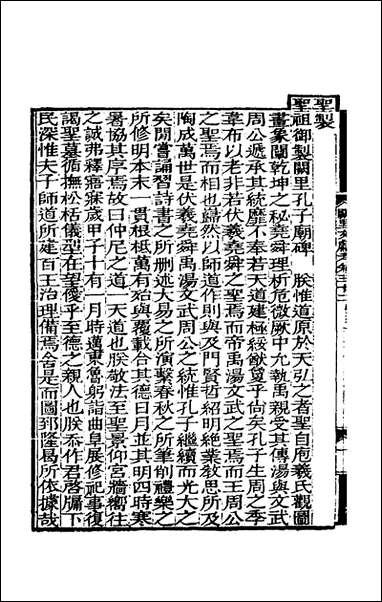 聖製
聖祖御製闕里孔子廟碑　朕惟道原於天弘之者聖自庖羲氏觀圖
畫象闡乾坤之秘堯舜理析危微厥中允執禹親受其傳湯與文武
周公遞承其統靡不奉若天道建極綏猷敻乎尙矣孔子生周之季
韋布以老非若伏羲堯舜之聖焉而帝禹湯文武之聖焉而王周公
之聖焉而相也巋然以師道作則與及門賢哲紹明絶業敎思所及
陶成萬世是伏羲堯舜禹湯文武周公之統惟孔子繼續而光大之
矣閒嘗誦習詩書之所刪述大易之所演繫春秋之所筆削禮樂之
所修明本末一貫根柢萬有始與覆載合其德日月並其明四時寒
暑協其序焉故曰仲尼之道一天道也朕敬法至聖景仰宮牆嚮往
之誠弗釋寤寐歲甲子十有一月時邁東魯躬詣曲阜展修祀事復
謁聖墓循撫松栝儀型在望僾乎至德之親人也朕忝作君啓牖下
民深惟夫子師道所建百王治理備焉舍是而圖郅隆曷所依據哉